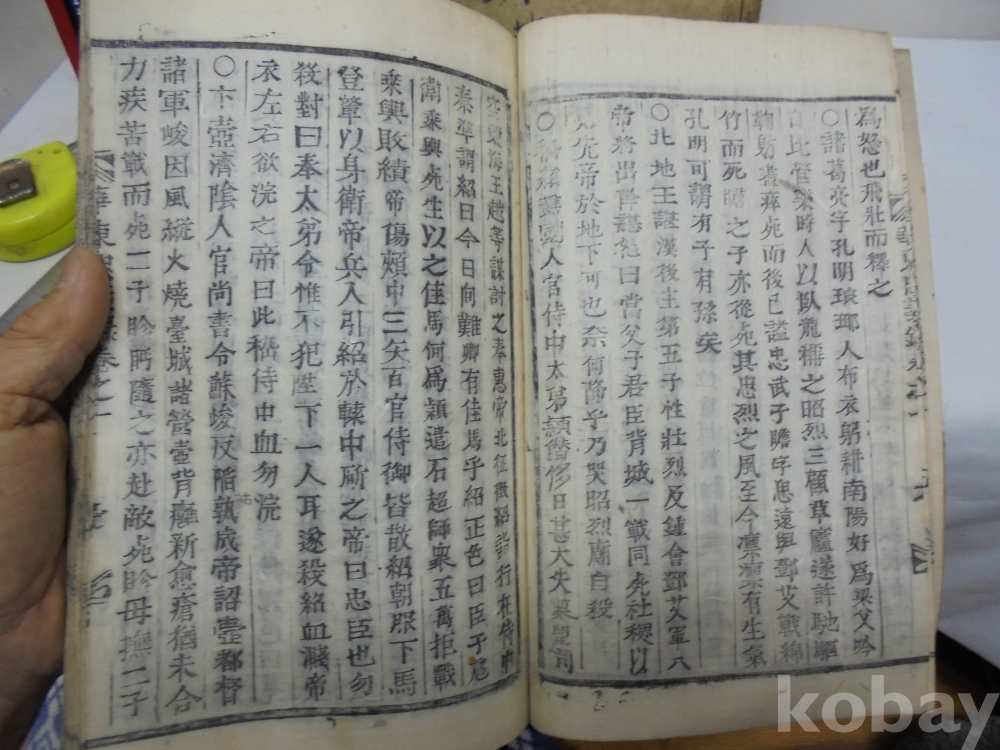 為怒也飛壯而釋之
○諸葛亮字孔明琅瑘人布衣躬耕南陽好爲梁父吟
自比管樂時人以臥龍稱之昭烈三顧草廬遂許馳驅
鞠躬盡瘁死而後已諡忠武子瞻字思遠與鄧艾戰綿
竹而死瞻之子亦從死其忠烈之風至今凛凛有生氣
孔明可謂有子有孫矣
○北地王諶漢後主第五子性壯烈及鍾會鄧艾軍入
帝將出降諶怒曰當父子君臣背城一戰同死社稷以
見先帝於地下可也奈何降乎乃哭昭烈廟自殺
○嵇紹譙國人官侍中太弟穎僭侈日甚大失衆望司
空東海王越等謀討之奉惠帝北征徵紹詣行在侍中
秦準謂紹曰今日向難卿有佳馬乎紹正色曰臣子扈
衛乘輿死生以之佳馬何爲穎遣石超師衆五萬拒戰
乘輿敗績帝傷頰中三矢百官侍御皆散紹朝服下馬
登輦以身衛帝兵入引紹於轅中斫之帝曰忠臣也勿
殺對曰奉太弟令惟不犯陛下一人耳遂殺紹血濺帝
衣左右欲浣之帝曰此嵇侍中血勿浣
○卞壺濟陰人官尚書令蘇峻反陷孰成帝詔壺都督
諸軍峻因風縱火燒臺城諸營壺背癰新愈瘡猶未合
力疾苦戰而死二子眕盱隨之亦赴敵死眕母撫二子
卷之一
kobay